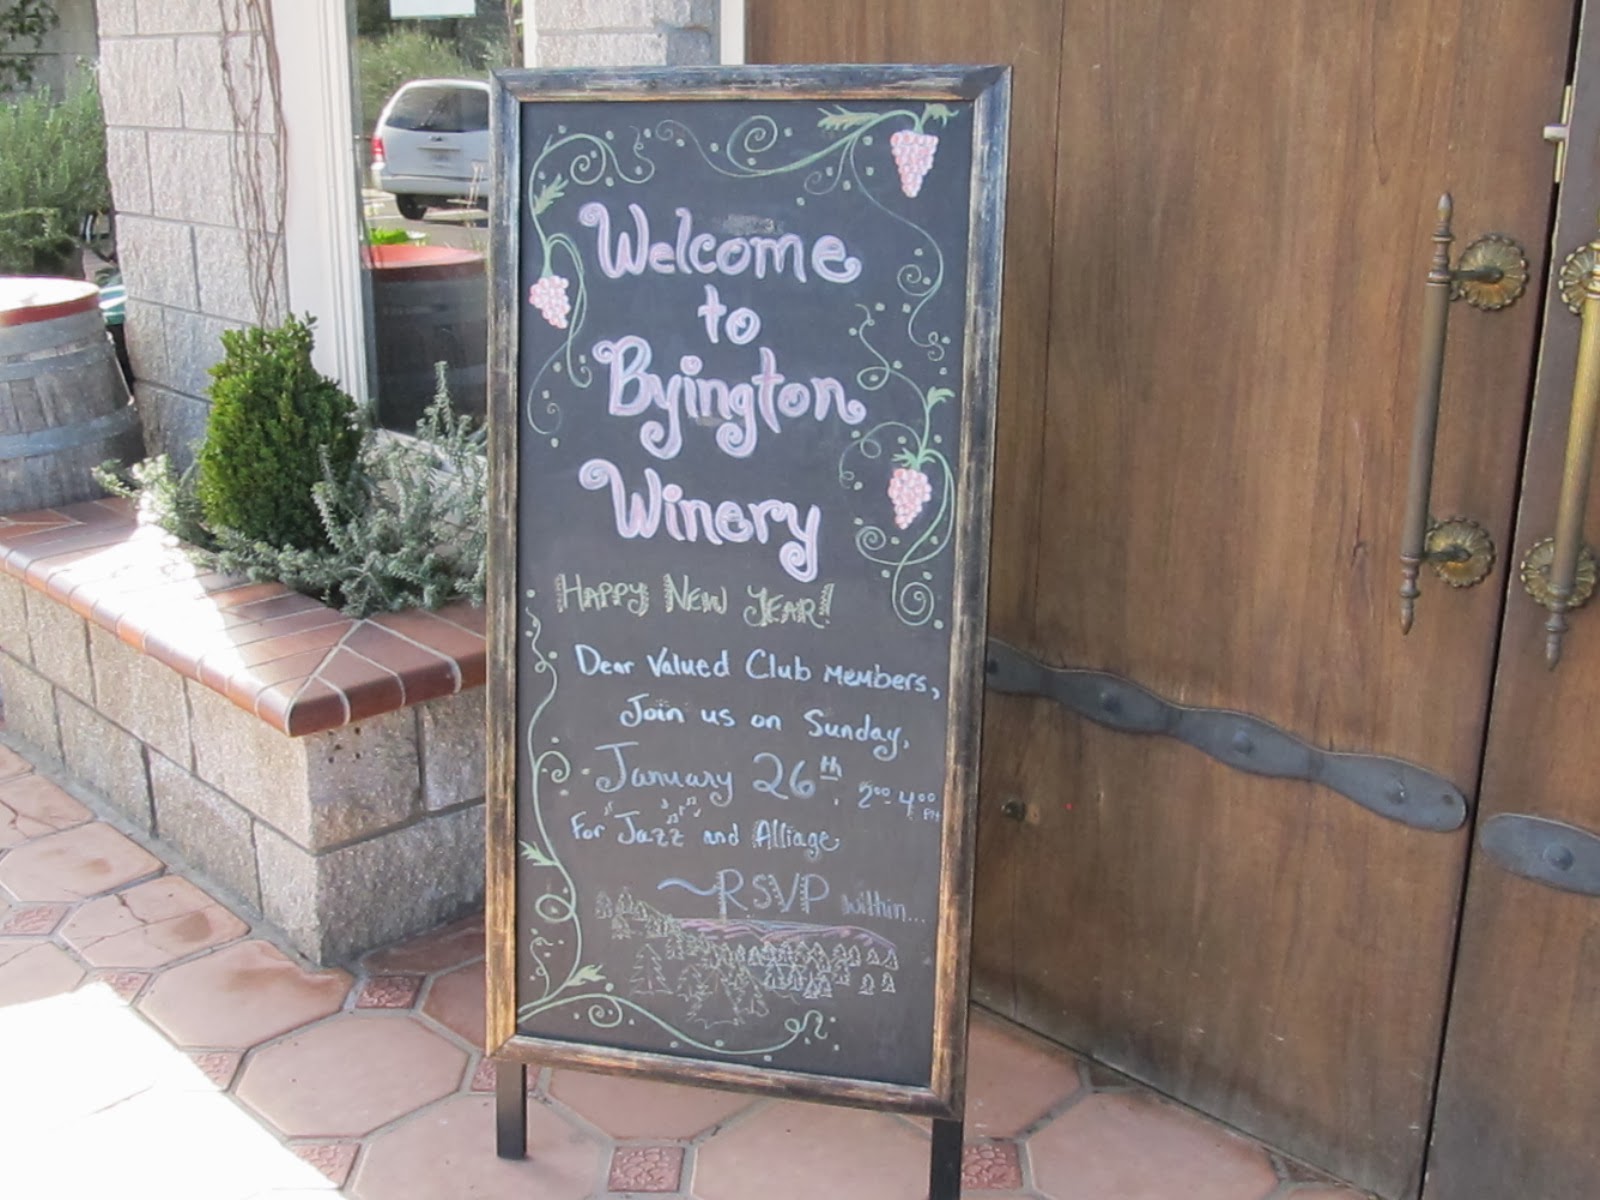 Welcome
to
Byington
Winery
HAPPY NEW YEAR!
Dear Valued Club Members,
Join us on Sunday,
January 26th, 2:00-4:00 PM
For Jazz and Alliage
~RSVP within...